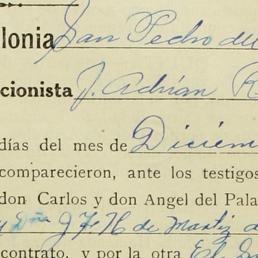 lonia San Pedro del
cionista J. Adrián R
días del mes de Diciem
comparecieron, ante los testigos
don Carlos y don Angel del Pala
y Dña J F H de
contrato, y por la otra El